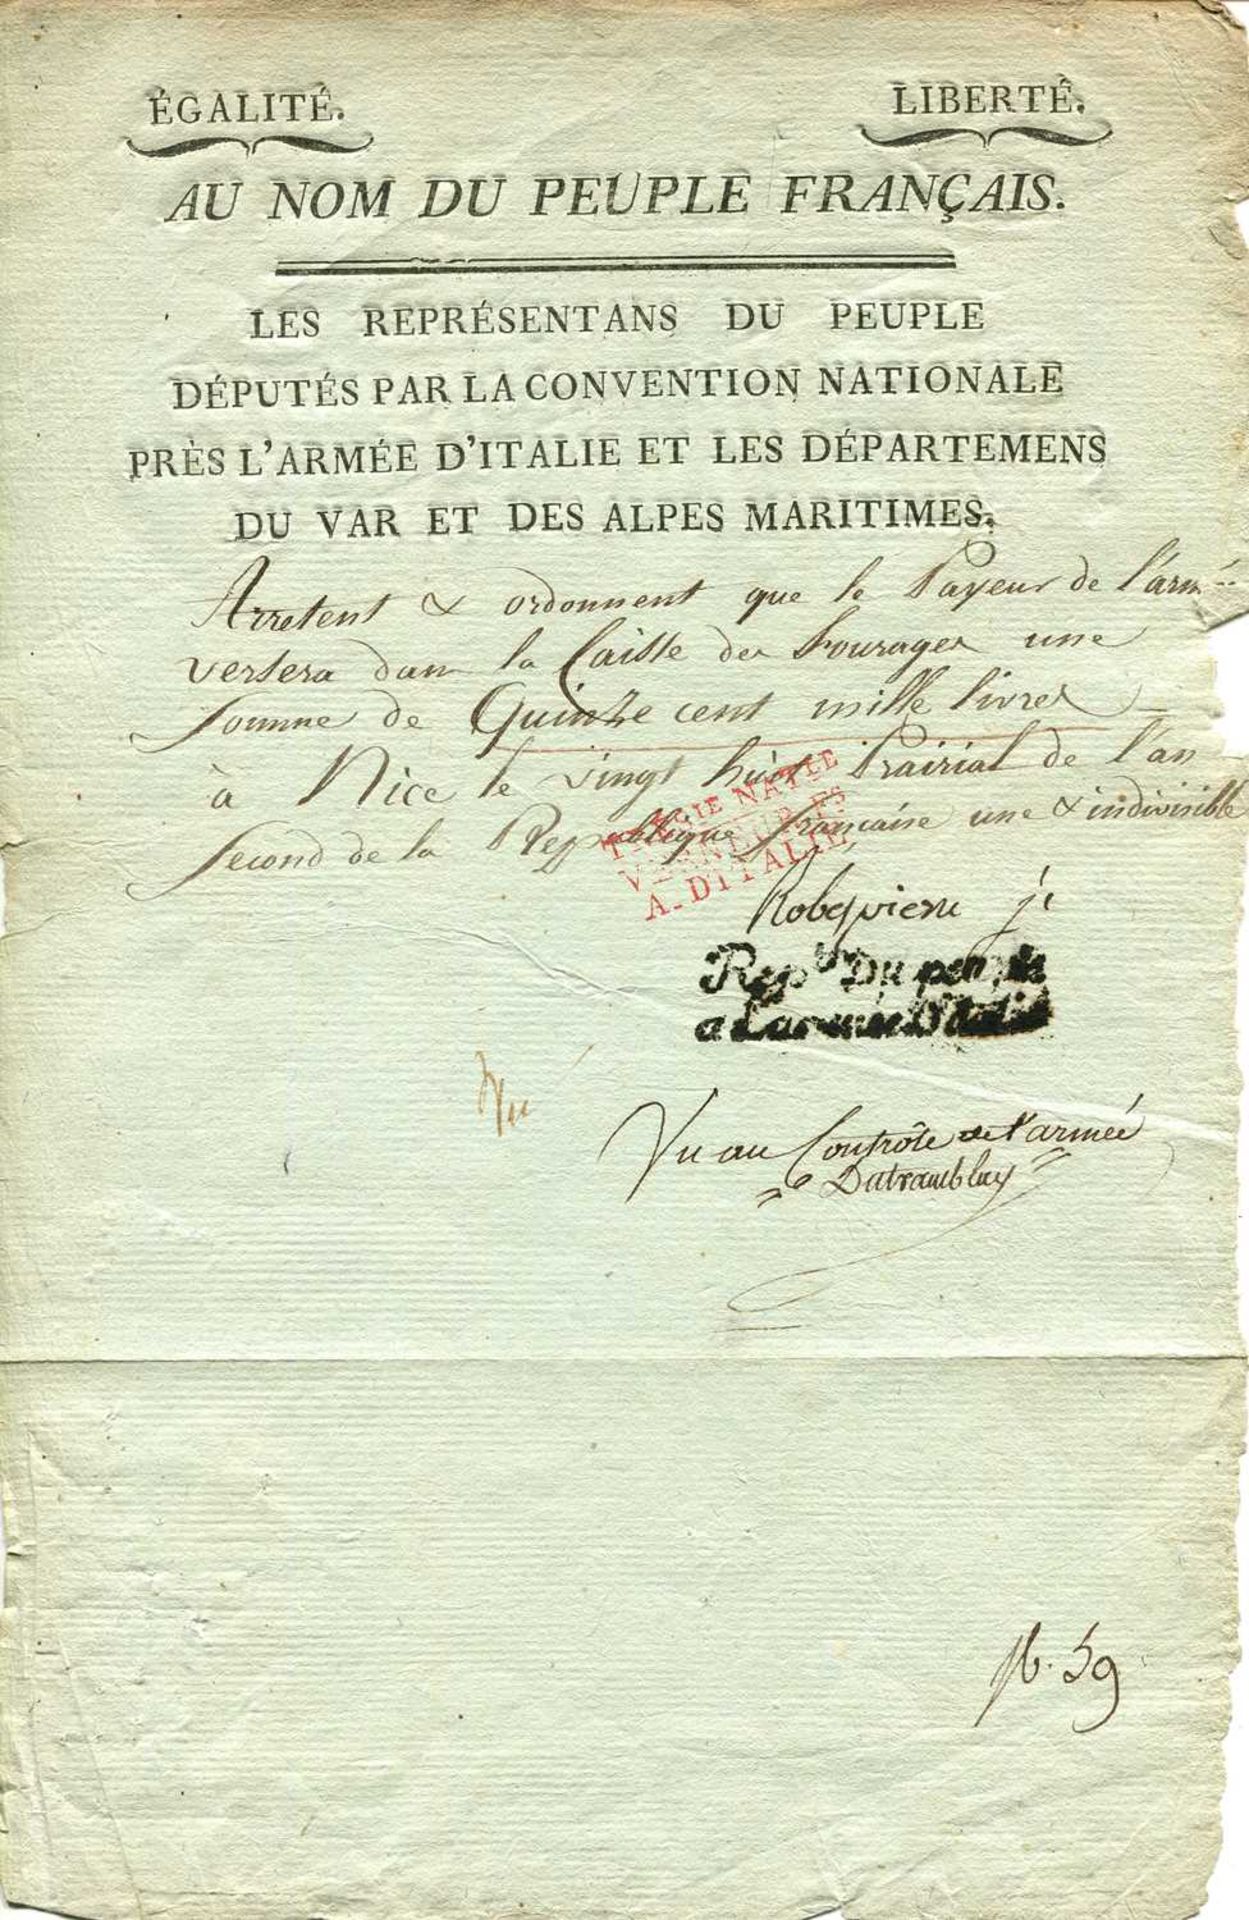 ÉGALITÉ. LIBERTÉ.
AU NOM DU PEUPLE FRANÇAIS.
LES REPRÉSENTANS DU PEUPLE
DÉPUTÉS PAR LA CONVENTION NATIONALE
PRÈS L'ARMÉE D'ITALIE ET LES DÉPARTEMENS
DU VAR ET DES ALPES MARITIMES.
Arretent & ordonnent que le Payeur de l'armé
versera dans la Caisse des Fourages une
somme de Quinze cent mille livres
à Nice le vingt huit Prairial de l'an
second de la Republique française une & indivisible
TRÉGIE NATLE
A. D'ITALIE
Robespierre je
Rep du peuple
a L'armée D'Italie
Vu
Vu au Contrôle de l'armée
Dutramblay
59